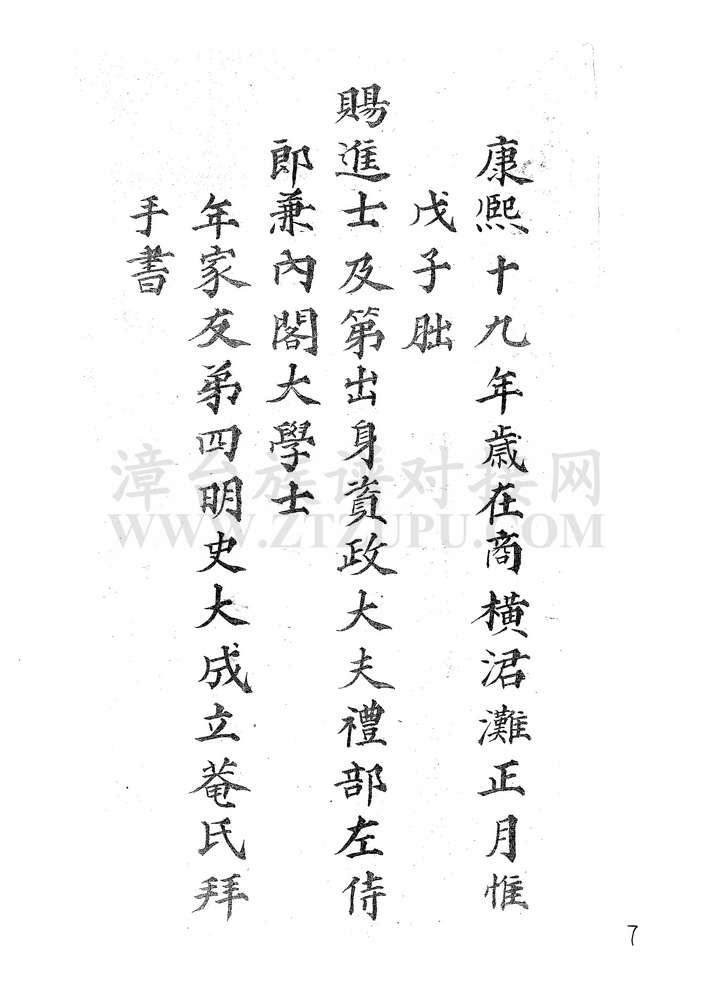 康熙十九年歲在商橫涒灘正月惟
戊子朏
賜進士及第出身資政大夫禮部左侍
郎兼內閣大學士
年家友弟四明史大成立菴氏拜
手書
漳台族谱对接网
WWW.ZTZUPU.COM
7